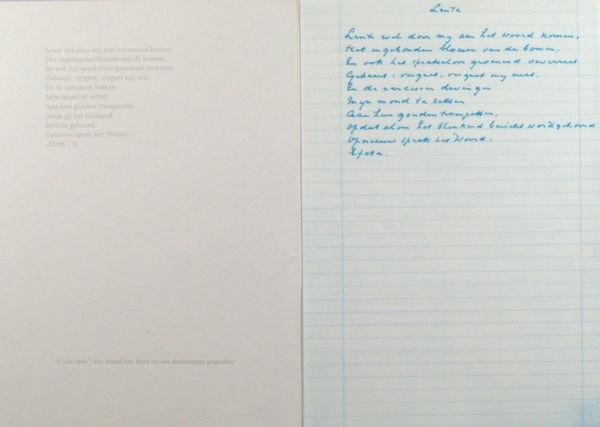 Lente wil door mij aan het woord komen.
Het ingehouden bloeien van de bomen.
En ook het sprakeloos groenend
Gebaart: vergeet, vergeet mij niet.
En de narcissen
Mijn mond te zetten
Aan hun gouden trompetten
Alom zij het blinkend
Bericht gehoord.
Opnieuw sprak het Woord:
„Efeta" ¹).
¹) „Ga open", een woord van Jezus tot een doofstomme gesproken.
Lente
Lente wil door mij aan het woord komen,
Het ingehouden bloeien van de bomen,
En ook het sprakeloos groenend
Gebaart: vergeet, vergeet mij niet.
En de narcissen dwingen
Mijn mond te zetten
Aan hun gouden trompetten,
Opdat alom het blinkend bericht wordt gehoord
Opnieuw sprak het Woord:
Efeta.